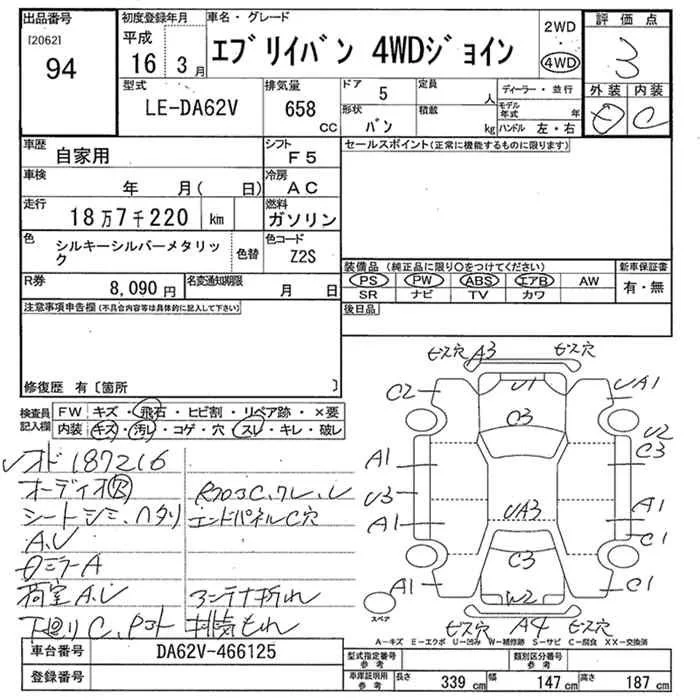 出品番号
[2062]
94
初度登録年月
平成
16 3月
車名・グレード
エブリイバン 4WDジョイン
2WD
4WD
評価点
3
外装 内装
C
型式
LE-DA62V
排気量
658
cc
ドア
5
形状
バン
定員
人
積載
kg
ディーラー・並行
モデル年式 年
ハンドル 左・右
車歴
自家用
シフト
F5
車検
年 月( 日)
冷房
AC
走行
18万7千220 km
燃料
ガソリン
色
シルキーシルバーメタリック
色替
色コード
Z2S
R券
8,090円
名変通知期限
月 日
セールスポイント(正常に機能するものに限ります)
装備品(純正品に限り○をつけてください)
PS PW ABS エアB AW
SR ナビ TV カワ
新車保証書
有・無
後日品
注意事項申告欄(不具合内容等は具体的に記入して下さい)
修復歴 有〔箇所 〕
検査員記入欄
FW キズ・飛石・ヒビ割・リペア跡・×要
内装 キズ・汚レ・コゲ・穴・スレ・キレ・破レ
オド187216
オーディオ
シートシミ、ヘタリ
エンドパネルC穴
A.U
ミラーA
荷室A.U
アンテナ折れ
下廻りC、
排気もれ
ビス穴 A3 ビス穴
C2 U1 UA1
C3
U2
C3
A1
U3
A1
UA3
A1
C1
C3
A1 W2 C1
スペア
ビス穴 A4 ビス穴
A-キズ E-エクボ U-凹み W-補修跡 S-サビ C-腐食 XX-交換済
車台番号 DA62V-466125
登録番号
型式指定番号 参考
類別区分番号 参考
車庫証明用 参考
長さ 339 cm 幅 147 cm 高さ 187 cm